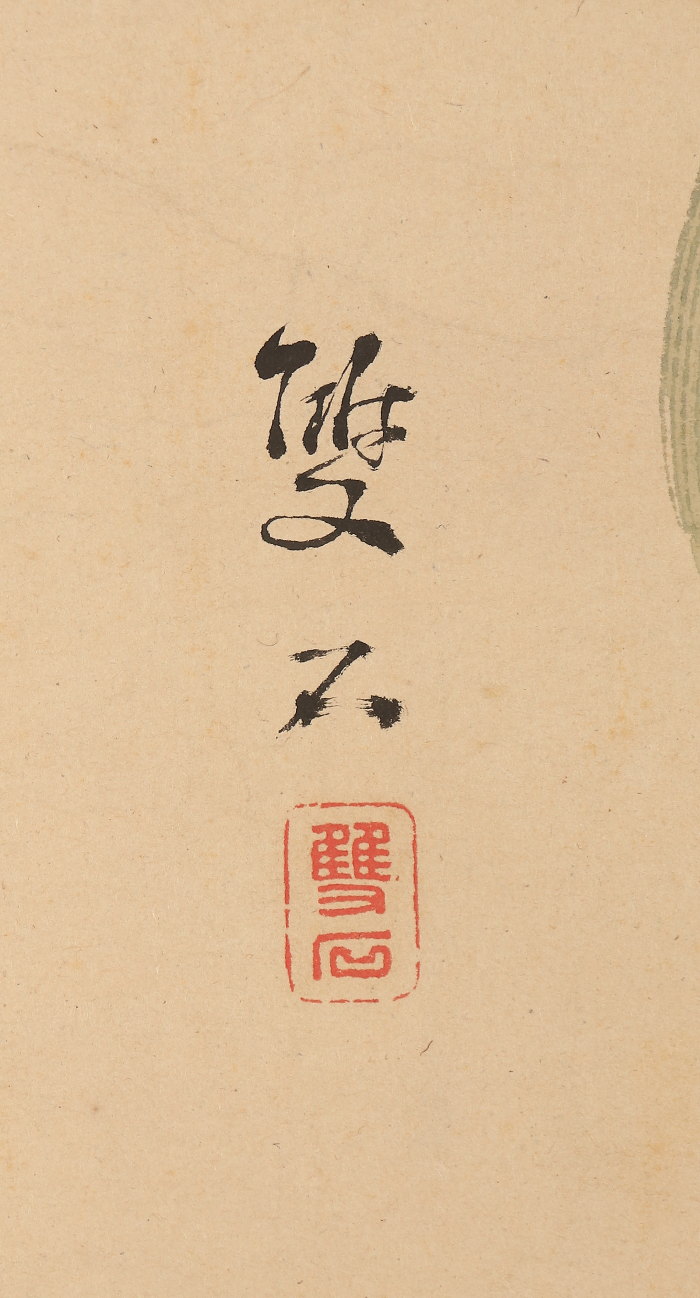 雙石
雙石